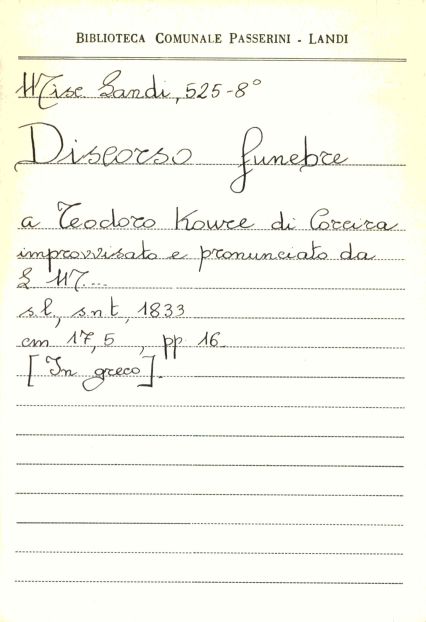 BIBLIOTECA COMUNALE PASSERINI - LANDI
Misc. Landi, 525-8°
Discorso funebre
a Teodoro Kowre di Corcira
improvvisato e pronunciato da
S. M....
s.l., s.n.t, 1833
cm 17,5, pp 16.
[In greco].